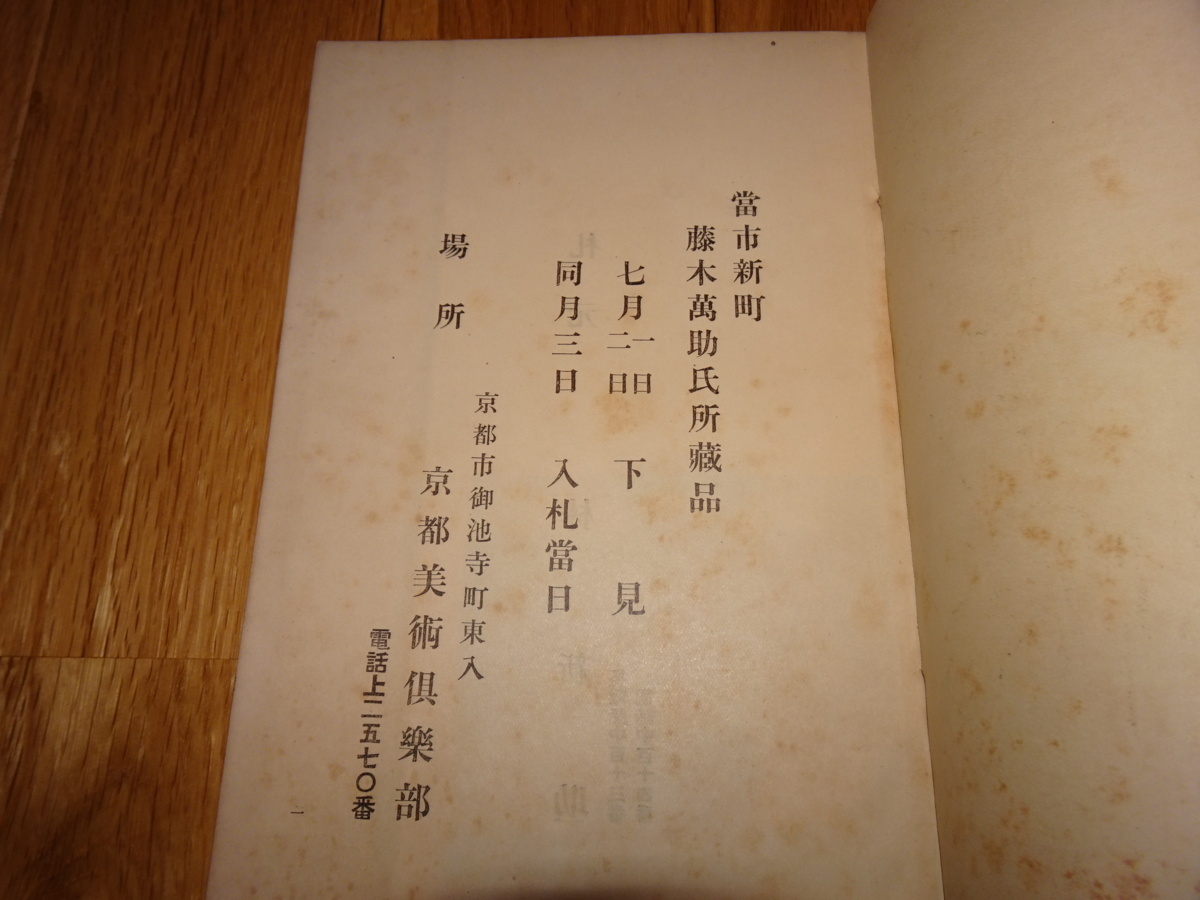 當市新町
藤木萬助氏所藏品
七月一日二日 下見
同月三日 入札當日
場所
京都市御池寺町東入
京都美術倶樂部
電話上二五七〇番
一